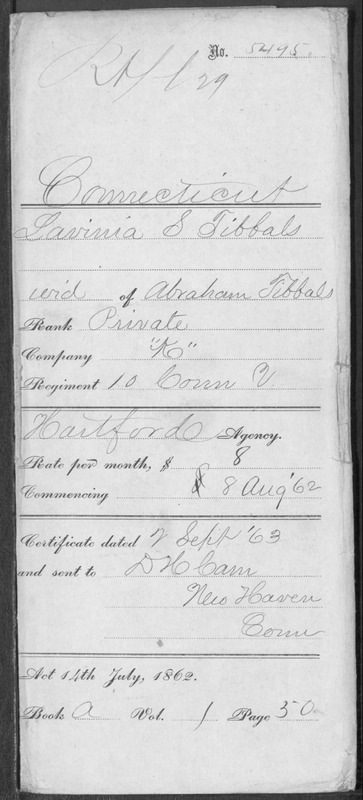 No. 5495
29
Connecticut
Lavinia S Tibbals
wid of Abraham Tibbals
Rank Private
Company "K"
Regiment 10 Conn V
Hartford Agency.
Rate per month, $ 8
Commencing 8 Aug '62
Certificate dated 2 Sept '63
and sent to D H Carr
New Haven
Conn
Act 14th July, 1862.
Book A Vol. 1 Page 50